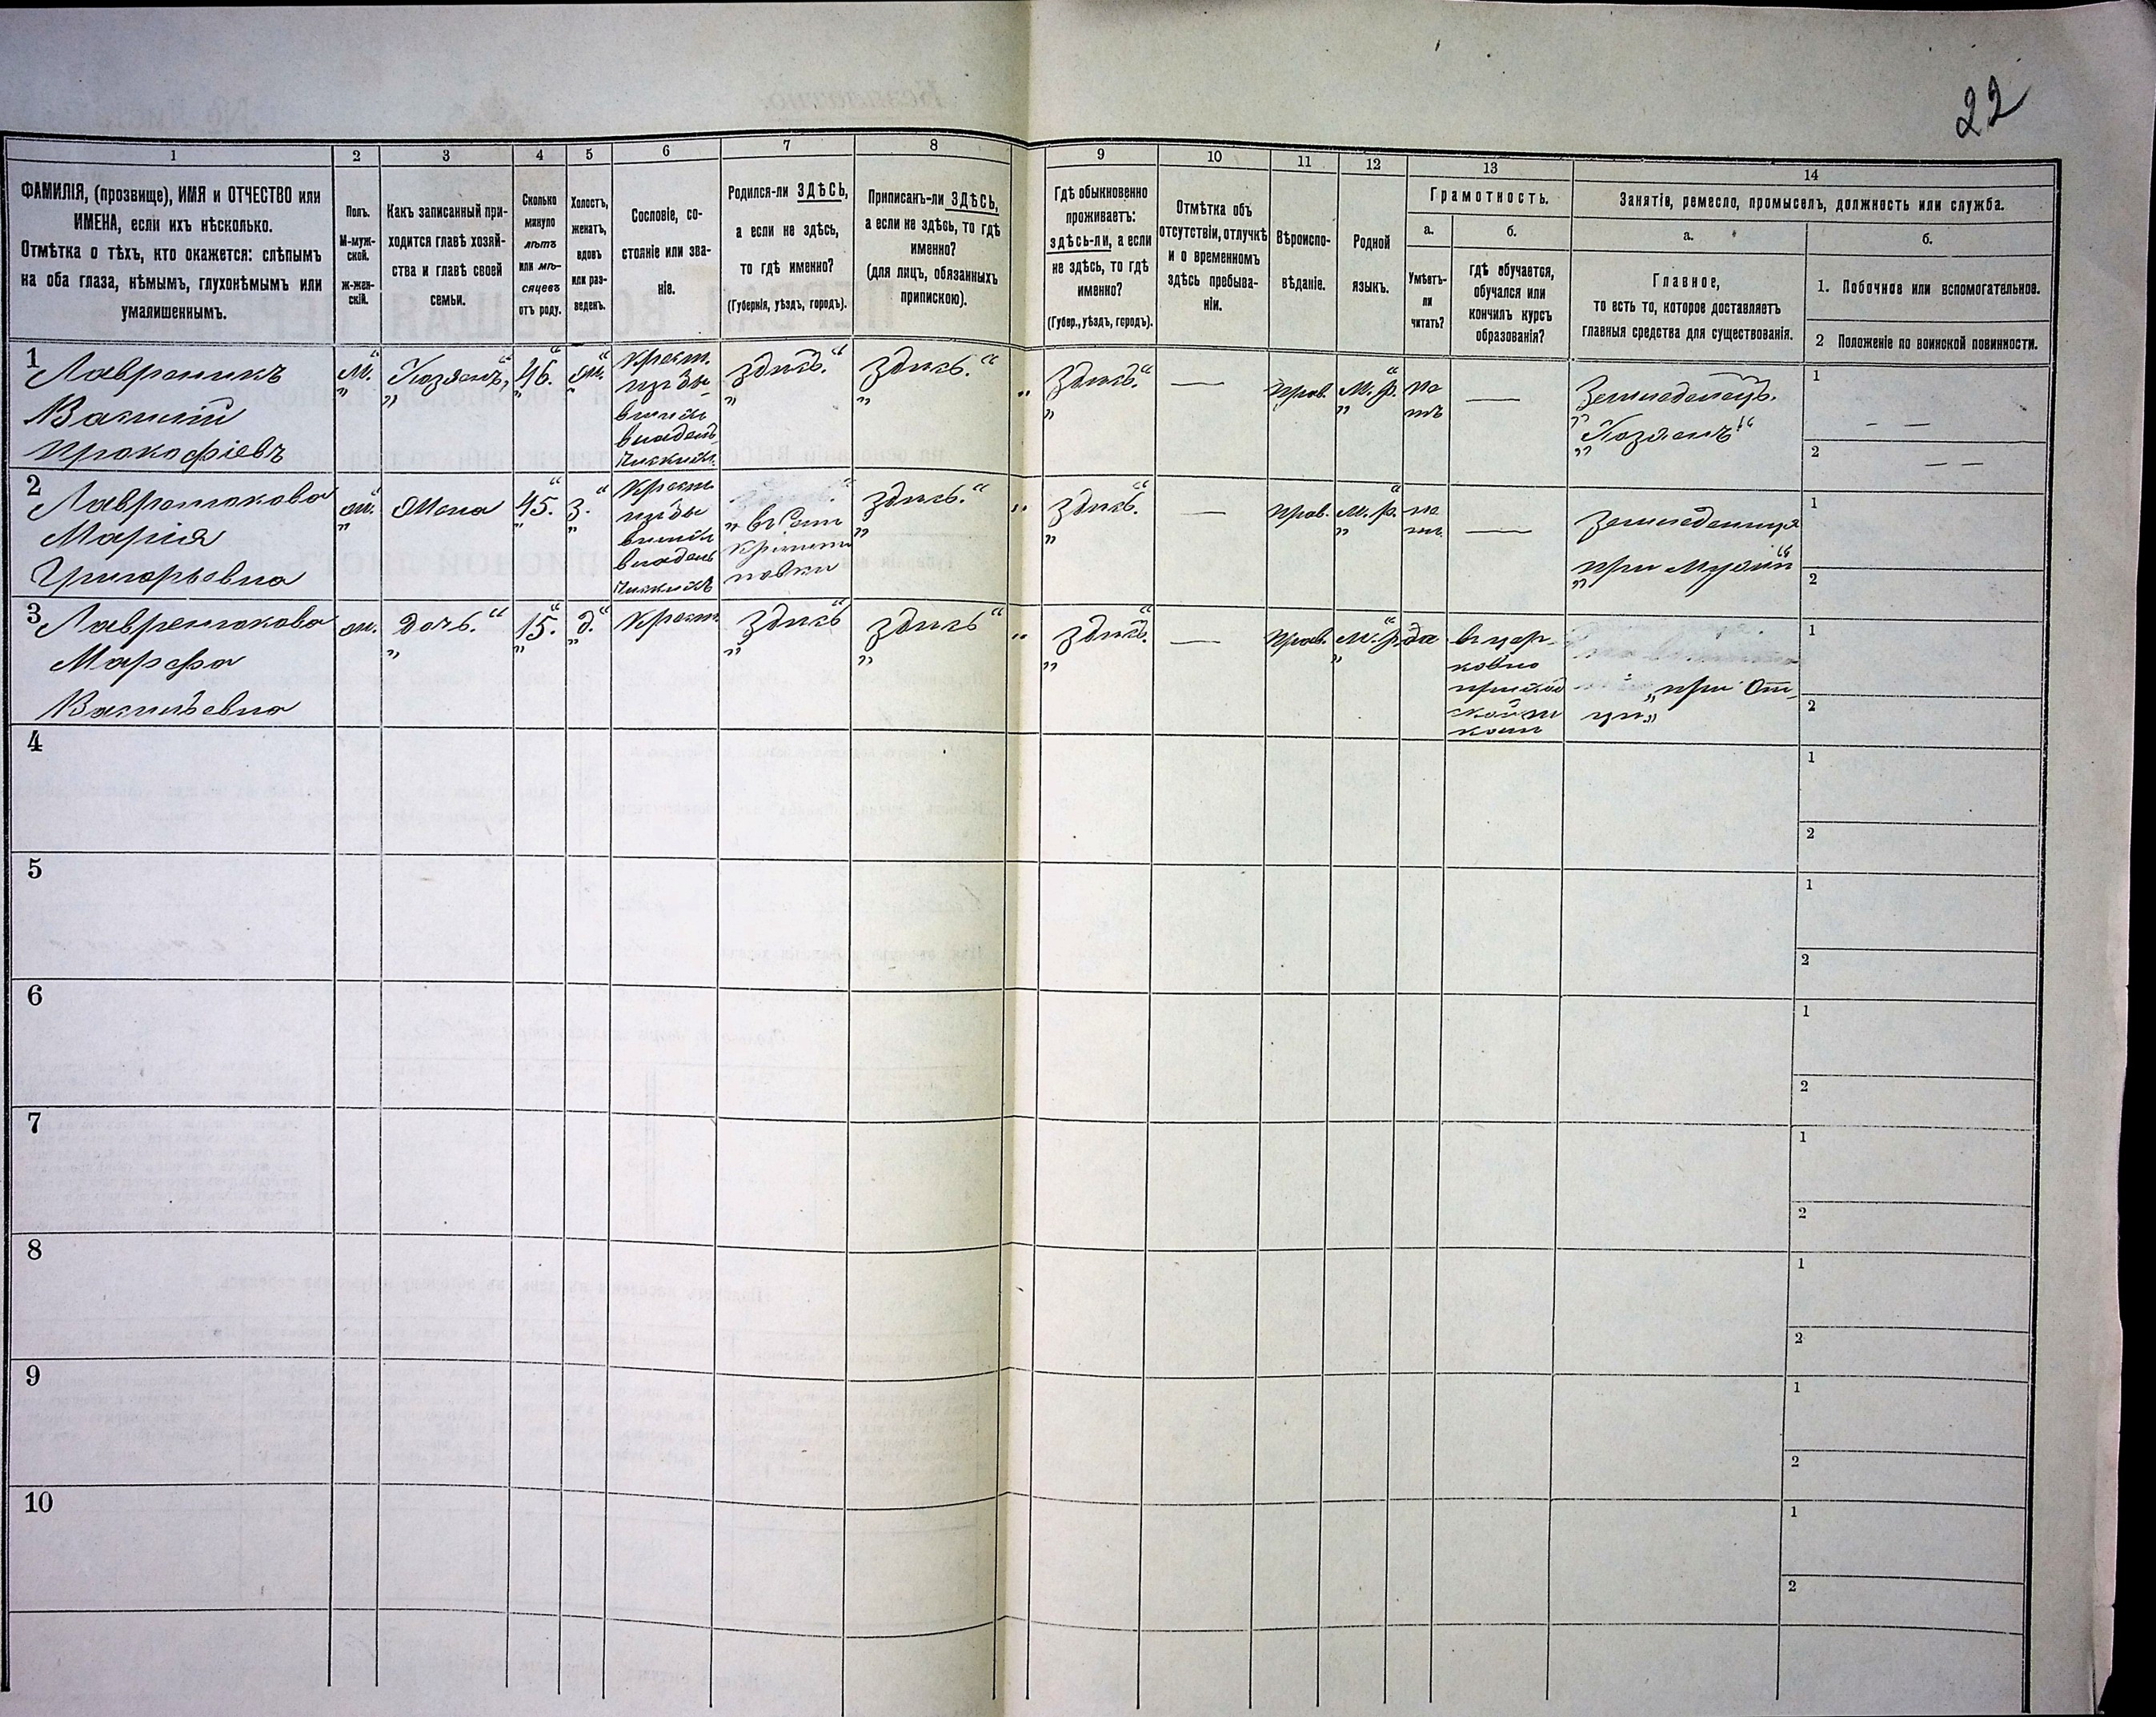 22
1 2 3 4 5 6 7 8 9 10 11 12 13 14
ФАМИЛІЯ, (прозвище), ИМЯ и ОТЧЕСТВО или
ИМЕНА, если ихъ нѣсколько.
Отмѣтка о тѣхъ, кто окажется: слѣпымъ
на оба глаза, нѣмымъ, глухонѣмымъ или
умалишеннымъ.
Полъ.
М-муж-
ской.
Ж-жен-
скій.
Какъ записанный при-
ходится главѣ хозяй-
ства и главѣ своей
семьи.
Сколько
минуло
лѣтъ
или мѣ-
сяцевъ
отъ роду.
Холостъ,
женатъ,
вдовъ
или раз-
веденъ.
Сословіе, со-
стояніе или зва-
ніе.
Родился-ли ЗДѢСЬ,
а если не здѣсь,
то гдѣ именно?
(Губернія, уѣздъ, городъ).
Приписанъ-ли ЗДѢСЬ,
а если не здѣсь, то гдѣ
именно?
(для лицъ, обязанныхъ
припискою).
Гдѣ обыкновенно
проживаетъ:
здѣсь-ли, а если
не здѣсь, то гдѣ
именно?
(Губер., уѣздъ, городъ).
Отмѣтка объ
отсутствіи, отлучкѣ
и о временномъ
здѣсь пребыва-
ніи.
Вѣроиспо-
вѣданіе.
Родной
языкъ.
Грамотность.
а.
Умѣетъ-
ли
читать?
б.
гдѣ обучается,
обучался или
кончилъ курсъ
образованія?
Занятіе, ремесло, промыселъ, должность или служба.
а.
Главное,
то есть то, которое доставляетъ
главныя средства для существованія.
б.
1. Побочное или вспомогательное.
2 Положеніе по воинской повинности.
1
Лавреникъ
Василій
Прокофіевъ
М.
„Хозяинъ“
„46.“
„ж.“
Крест.
изъ бы
вшихъ
владель
ческихъ
„здѣсь.“
„здѣсь.“
„здѣсь.“
—
прав.
„М. р.“
не
тъ
—
Земледелецъ.
„Хозяинъ“
1 — —
2 — —
2
Лавренюкова
Марія
Григорьевна
„ж.“
Жена
„45.“
„З.“
Крест
изъ бы
вшихъ
владель
ческихъ
„въ Селѣ
„здѣсь.“
„здѣсь.“
—
прав.
„М. р.“
не
тъ
—
Земледелица
„при Мужѣ“
1
2
3
Лавренюкова
Марфа
Васильевна
ж.
„Дочь.“
„15.“
„д.“
Крест
„здѣсь“
„здѣсь“
„здѣсь.“
—
прав.
„М. р.“
да
въ цер-
ковно
приход
ской ш
коли
„при От-
цѣ„
1
2
4
1
2
5
1
2
6
1
2
7
1
2
8
1
2
9
1
2
10
1
2